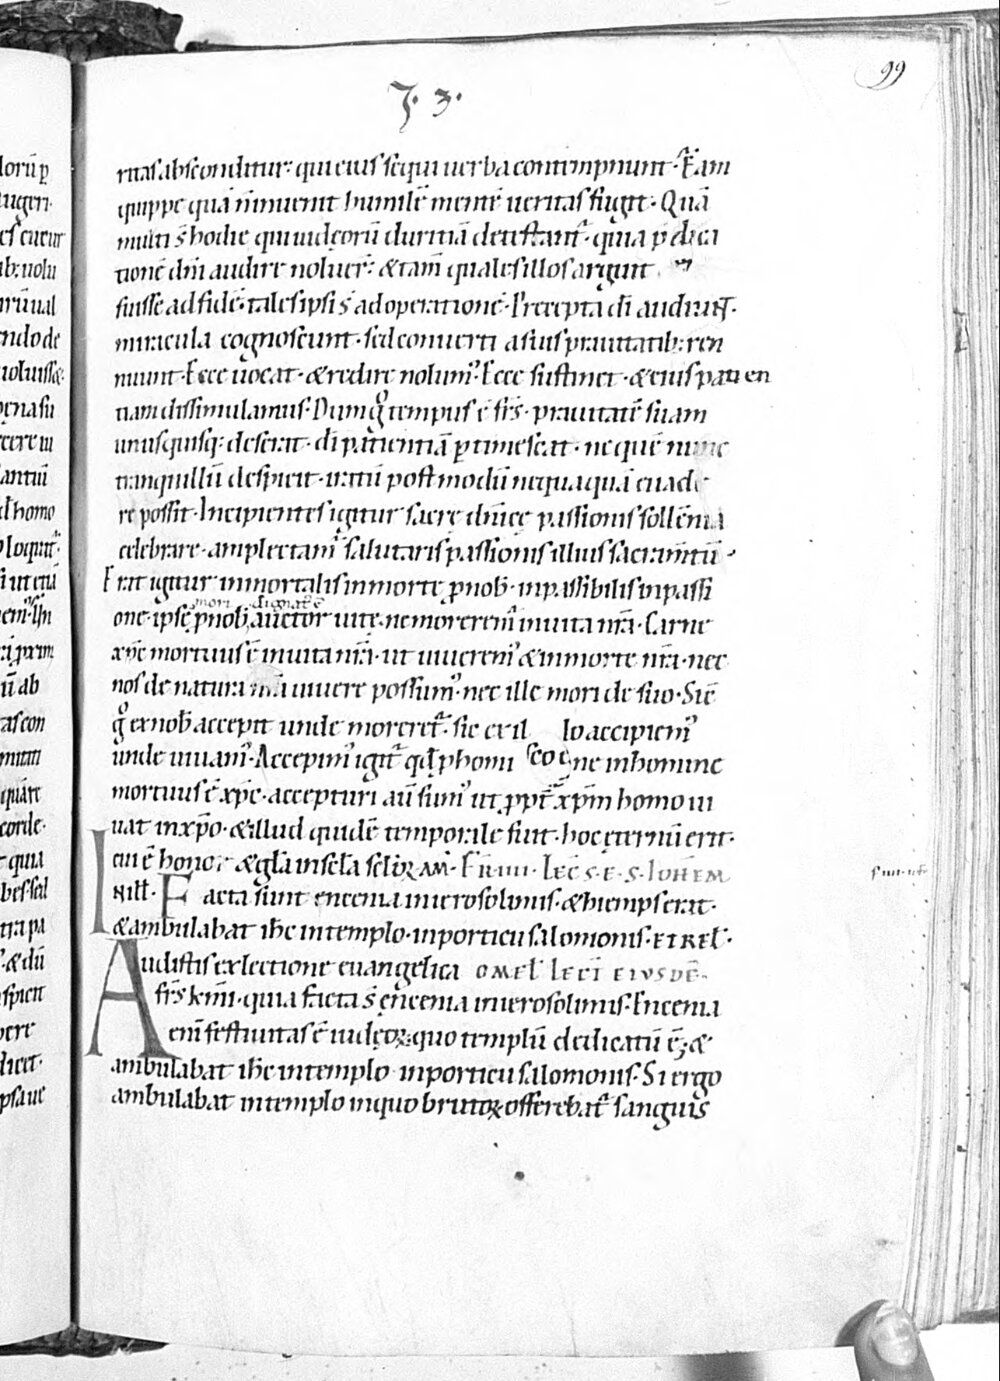 99
73
ritas absconditur· qui eius sequi uerba contempnunt· Eam
quippe quā ñ inuenit humilē mentē ueritas fugit· Quā
multi s̄ hodie qui iudeorū duritiā detestant᷑· quia p̄dica
tionē dñi audire noluer̄· & tam̄ quales illos argunt
fuisse ad fidē· tales ipsi s̄ ad operationē· Precepta dī audiunt·
miracula cognoscunt· sed conuerti a suis prauitatib; ren
nuunt· Ecce uocat· & redire nolum᷒· Ecce sustinet· & eius patien
tiam dissimulamus· Dum gͦ tempus ē frs̄· prauitatē suam
unusquisq; deserat· dī patientiā ꝑtimescat· ne quē nunc
tranquillū despicit· iratū postmodū nequaquā euade
re possit· Incipientes igitur sacre dn̄icę passionis sollēnia
celebrare· amplectam᷑ salutaris passionis illius sacram̄tū·
Erat igitur inmortalis in morte ꝓ nob̄· inpassibilis in passi
mori dignat᷒ ē
one· ipse ꝓ nob̄ auctor uite· ne morerem᷑ in uita nr̄a· Carne
xp̄c mortuus ē in uita nr̄a· ut uiuerem᷒ & in morte nr̄a· nec
nos de natura nr̄a uiuere possum᷒· nec ille mori de suo· Sic̄
gͦ ex nob̄ accepit unde moreret᷑· sic ex illo accipiem᷒
unde uiuam᷒· Accepim᷒ igit᷑ qd̄ ꝓ homi ne in homine
mortuus ē xp̄c· accepturi aū sum᷒ ut ꝓpt̄ xp̄m homo ui
uat in xp̄o· & illud quidē temporale fuit· hoc ęternū erit·
cui ē honor & gl̄a in sclā sclōꝝ AM̄· FR̄ IIII· LEC̄ S· E· S· IOHEM
IN ILL· Facta sunt encenia in ierosolimis· & hiemps erat·
& ambulabat ih̄c in templo· in porticu salomonis· ET REL̄·
Audistis ex lectione euangelica OMEL̄ LECT̄ EIUSDĒ·
frs̄ km̄i· quia facta s̄ encenia in ierosolimis· Encenia
eni festiuitas ē iudęoꝝ quo templū dedicatū ē; &
ambulabat ih̄c in templo in porticu salomonis· Si ergo
ambulabat in templo in quo brutoꝝ offerebat᷑ sanguis